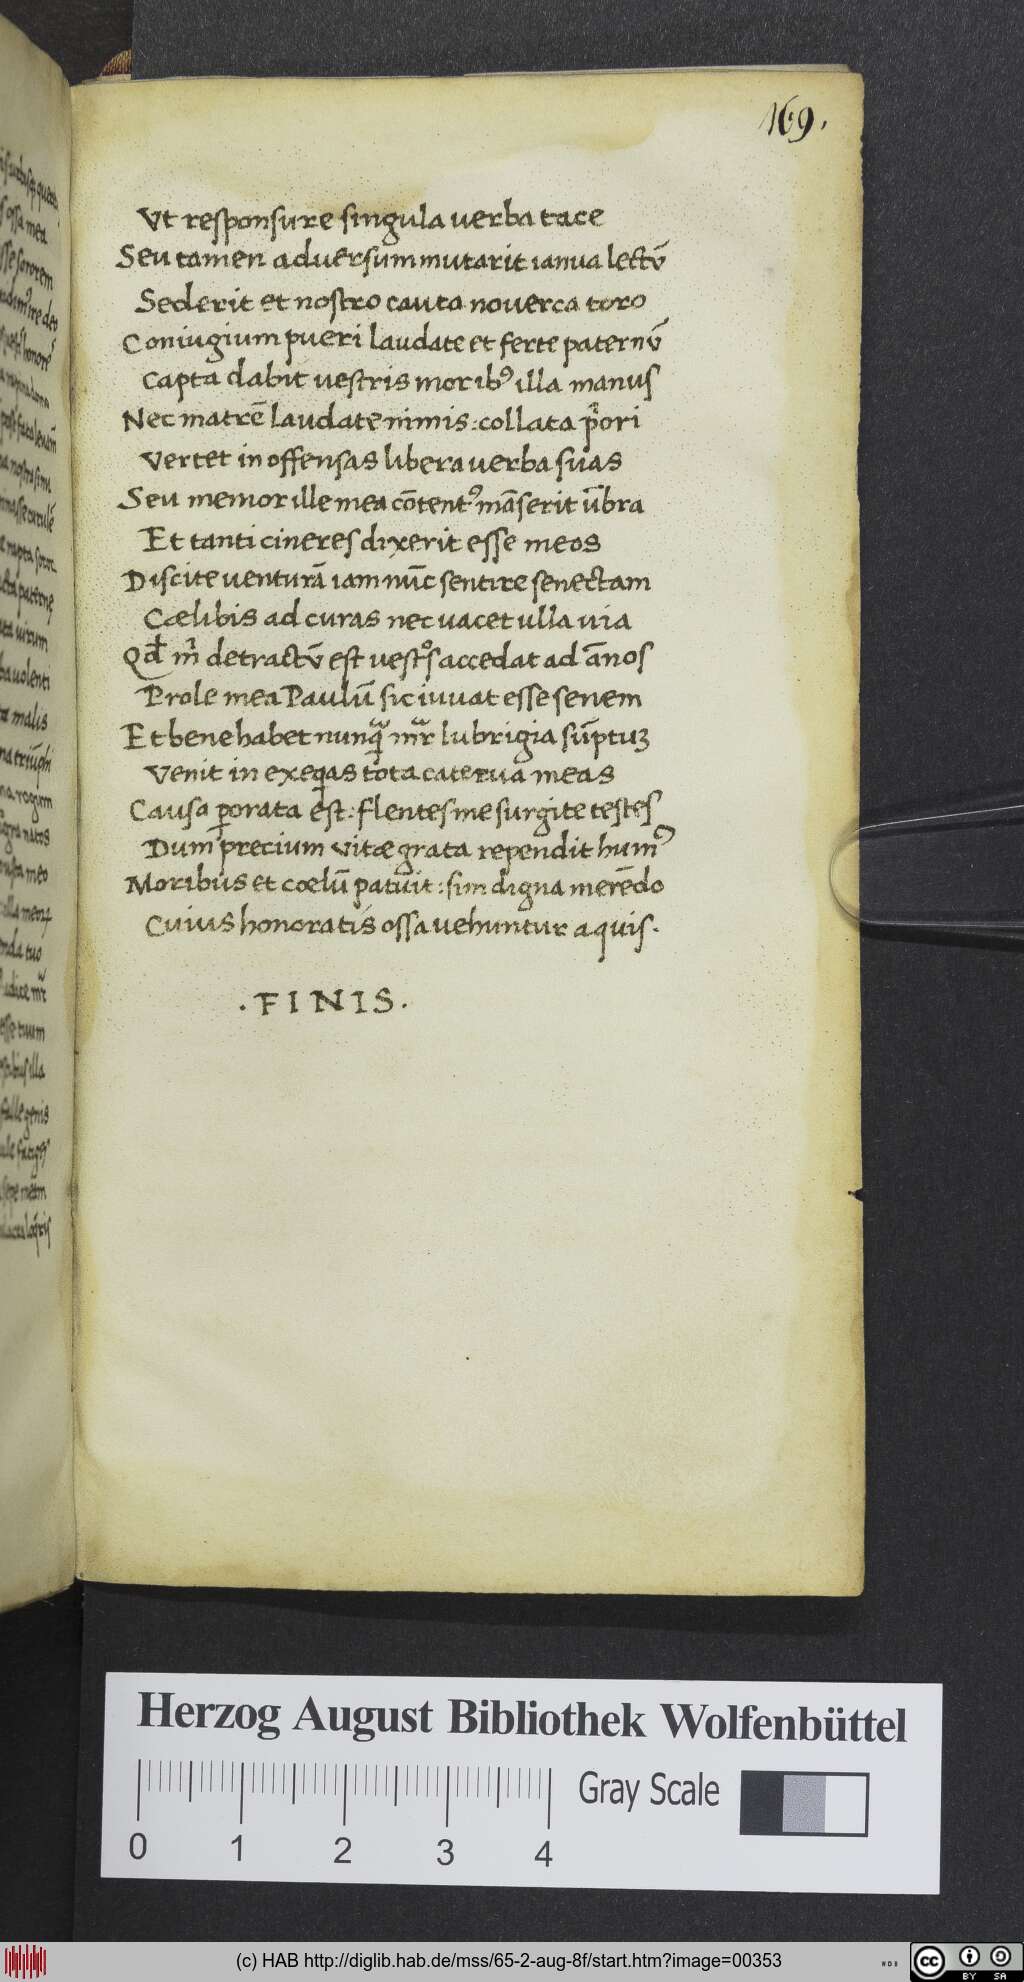 169.
Vt responsure singula verba tace
Seu tamen aduersum mutarit ianua lectū
Sederit et nostro cauta nouerca toro
Coniugium pueri laudate et ferte paternū
Capta dabit vestris morib9 illa manus
Nec matrē laudate nimis: collata p̄ori
Vertet in offensas libera uerba suas
Seu memor ille mea cōtent9 māserit ūbra
Et tanti cineres dixerit esse meos
Discite uenturā iam nūc sentire senectam
Cœlibis ad curas nec uacet ulla uia
Qd m̄ detractū est uest̄s accedat ad ānos
Prole mea Paulū sic iuuat esse senem
Et bene habet nunq̄ mr̄ lubrigia sūptuʒ
Venit in exeq̄as tota caterua meas
Causa ꝑorata est: flentes me surgite testes
Dum precium vitæ grata rependit hum9
Moribus et cœlū patuit: sim digna merēdo
Cuius honoratis ossa uehuntur aquis.
.FINIS.
Herzog August Bibliothek Wolfenbüttel
Gray Scale
0 1 2 3 4
(c) HAB http://diglib.hab.de/mss/65-2-aug-8f/start.htm?image=00353
cc BY SA